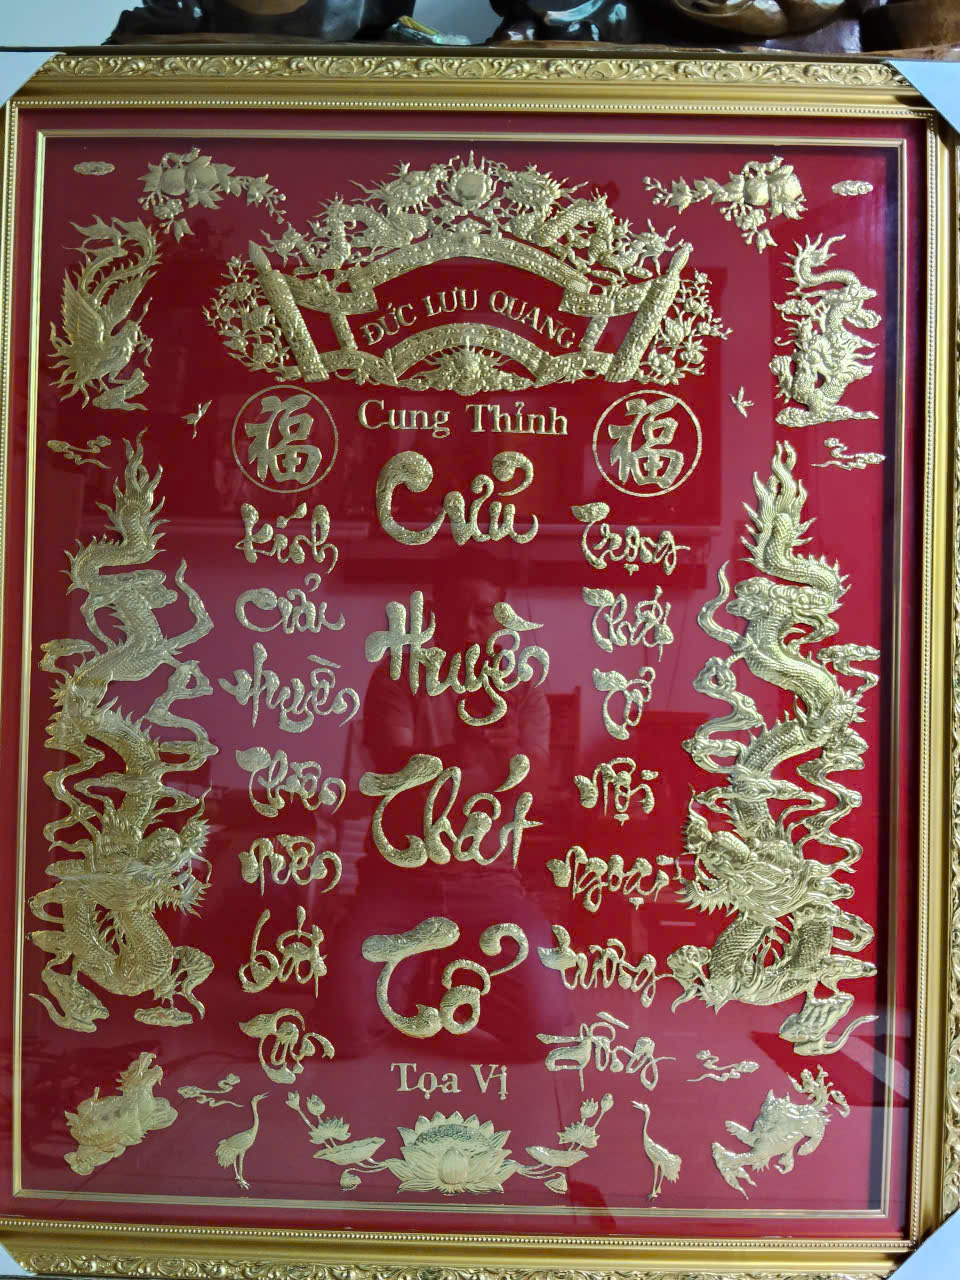 ĐỨC LƯU QUANG
福
Cung Thỉnh
福
Cửu
Huyền
Thất
Tổ
Tọa Vị
Kính
Cửu
Huyền
Thiên
niên
bất
Trọng
Thất
Tổ
Nội
Ngoại
tương
đồng